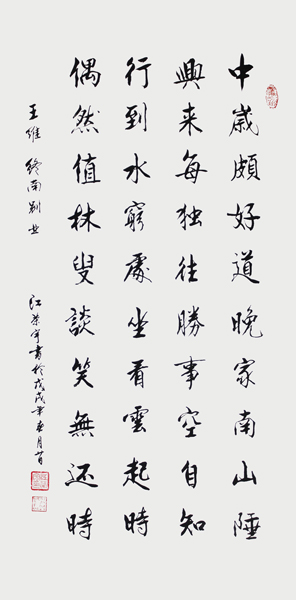 中歲頗好道晚家南山陲
興来每独往勝事空自知
行到水窮處坐看雲起時
偶然值林叟談笑無还時
王維 終南别业 書於戊戌年